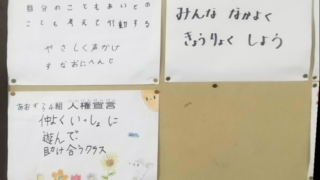 自分のこともあいての
ことも考えて行動する
やさしく声かけ
すなおにへんじ
みんな なかよく
きょうりょく しよう
あおぞら4組 人権宣言
仲よくいっしょに
遊んで
助け合うクラス